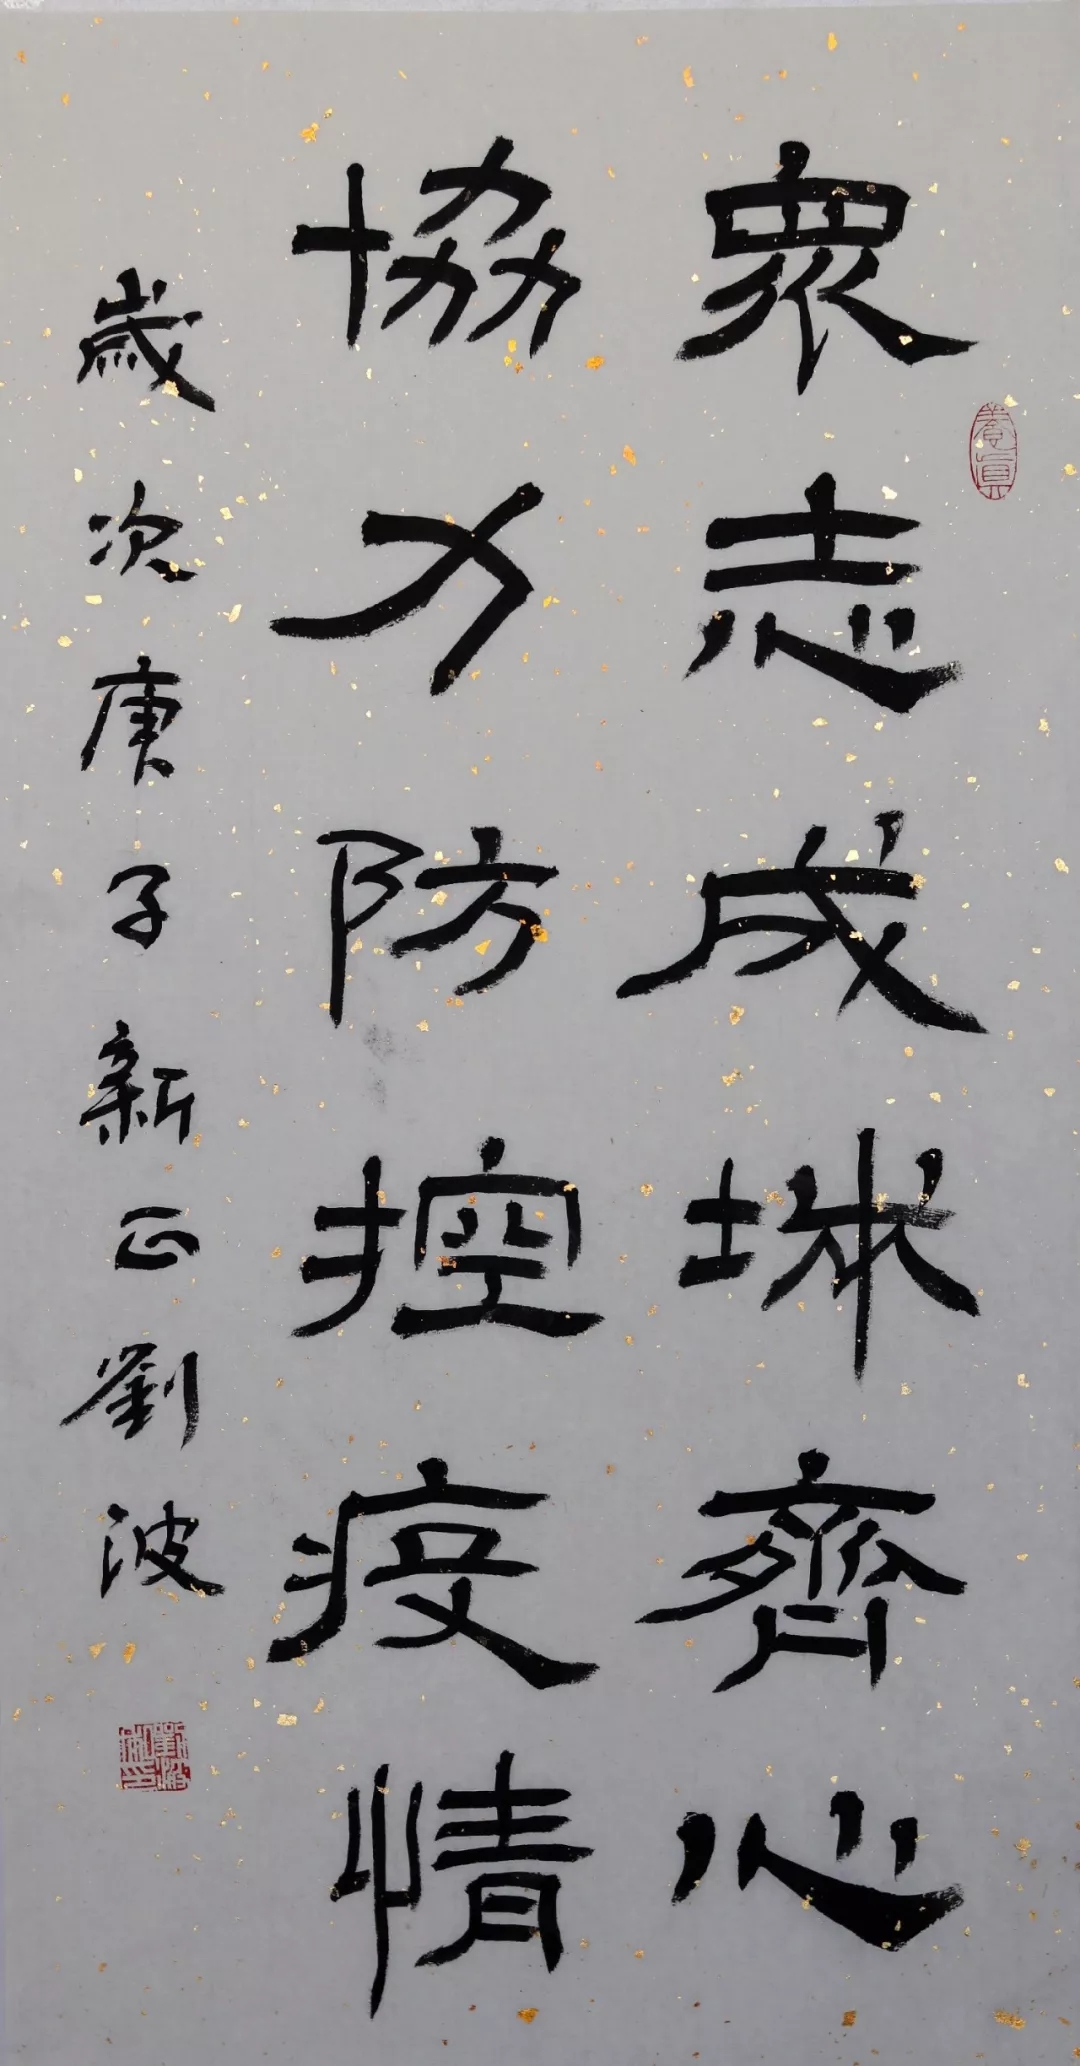 衆志成城齊心
協力防控疫情
歲次庚子新正劉波
養真